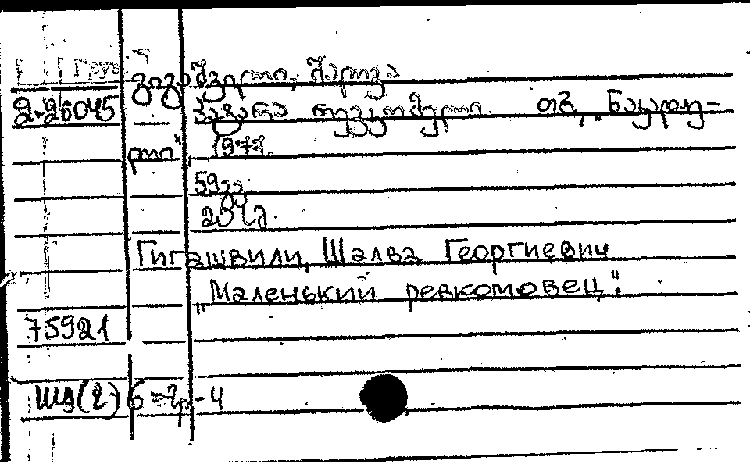 გიგაშვილი, შალვა
2-26045 პატარა რევკომელი. თბ, „ნაკადუ-
ლი", 1977.
59გვ.
20კ.
Гигашвили, Шалва Георгиевич
„Маленький ревкомовец".
75921